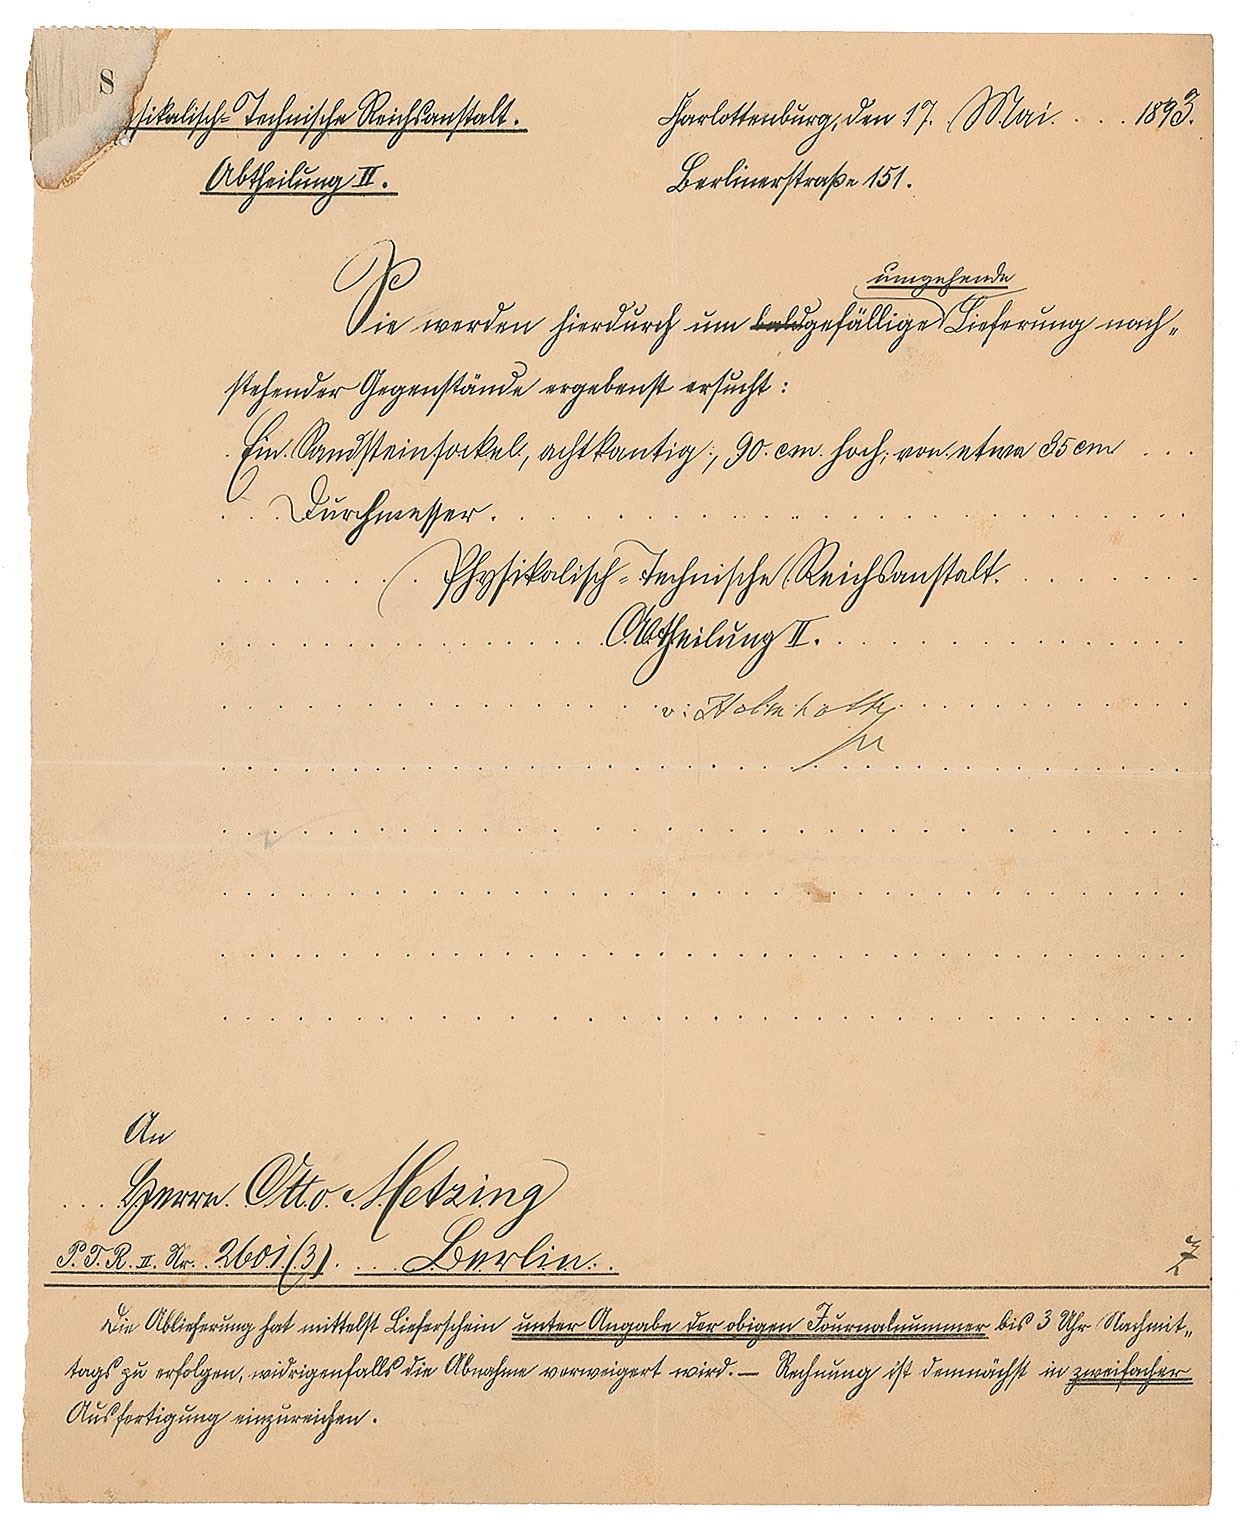 8
sikalisch-Technische Reichsanstalt. Charlottenburg, den 17. Mai 1893.
Abtheilung II. Berlinerstraße 151.
umgehende
Sie werden hierdurch um baldgefällige Lieferung nach-
stehender Gegenstände ergebenst ersucht:
Ein Sandsteinsockel, achtkantig, 90 cm hoch, von etwa 35 cm
Durchmesser.
Physikalisch-Technische Reichsanstalt.
Abtheilung II.
v: Helmholtz
An
Herrn Otto Metzing
P. T. R. II. Nr. 2601 (3). Berlin.
Die Ablieferung hat mittelst Lieferschein unter Angabe der obigen Journalnummer bis 3 Uhr Nachmit-
tags zu erfolgen, widrigenfalls die Abnahme verweigert wird. — Rechnung ist demnächst in zweifacher
Ausfertigung einzureichen.